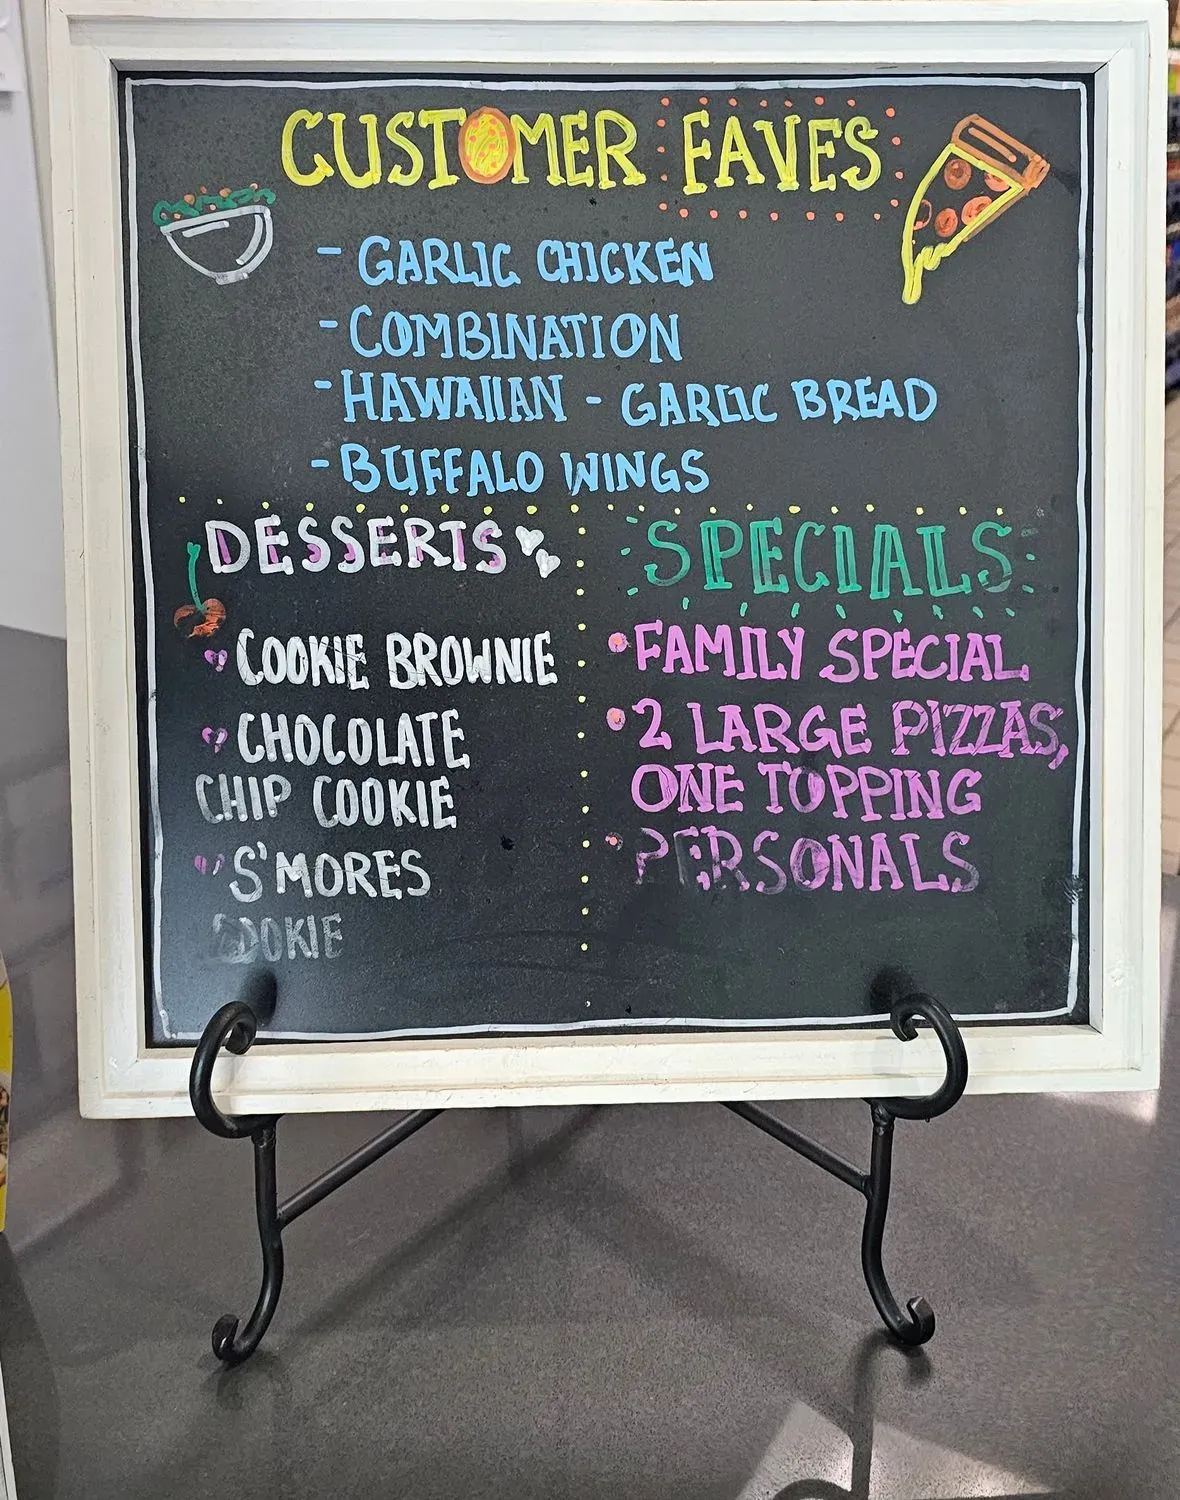 CUSTOMER FAVES
- GARLIC CHICKEN
- COMBINATION
- HAWAIIAN - GARLIC BREAD
- BUFFALO WINGS
DESSERTS
COOKIE BROWNIE
CHOCOLATE
CHIP COOKIE
S'MORES
COOKIE
SPECIALS
• FAMILY SPECIAL
• 2 LARGE PIZZAS,
ONE TOPPING
• PERSONALS